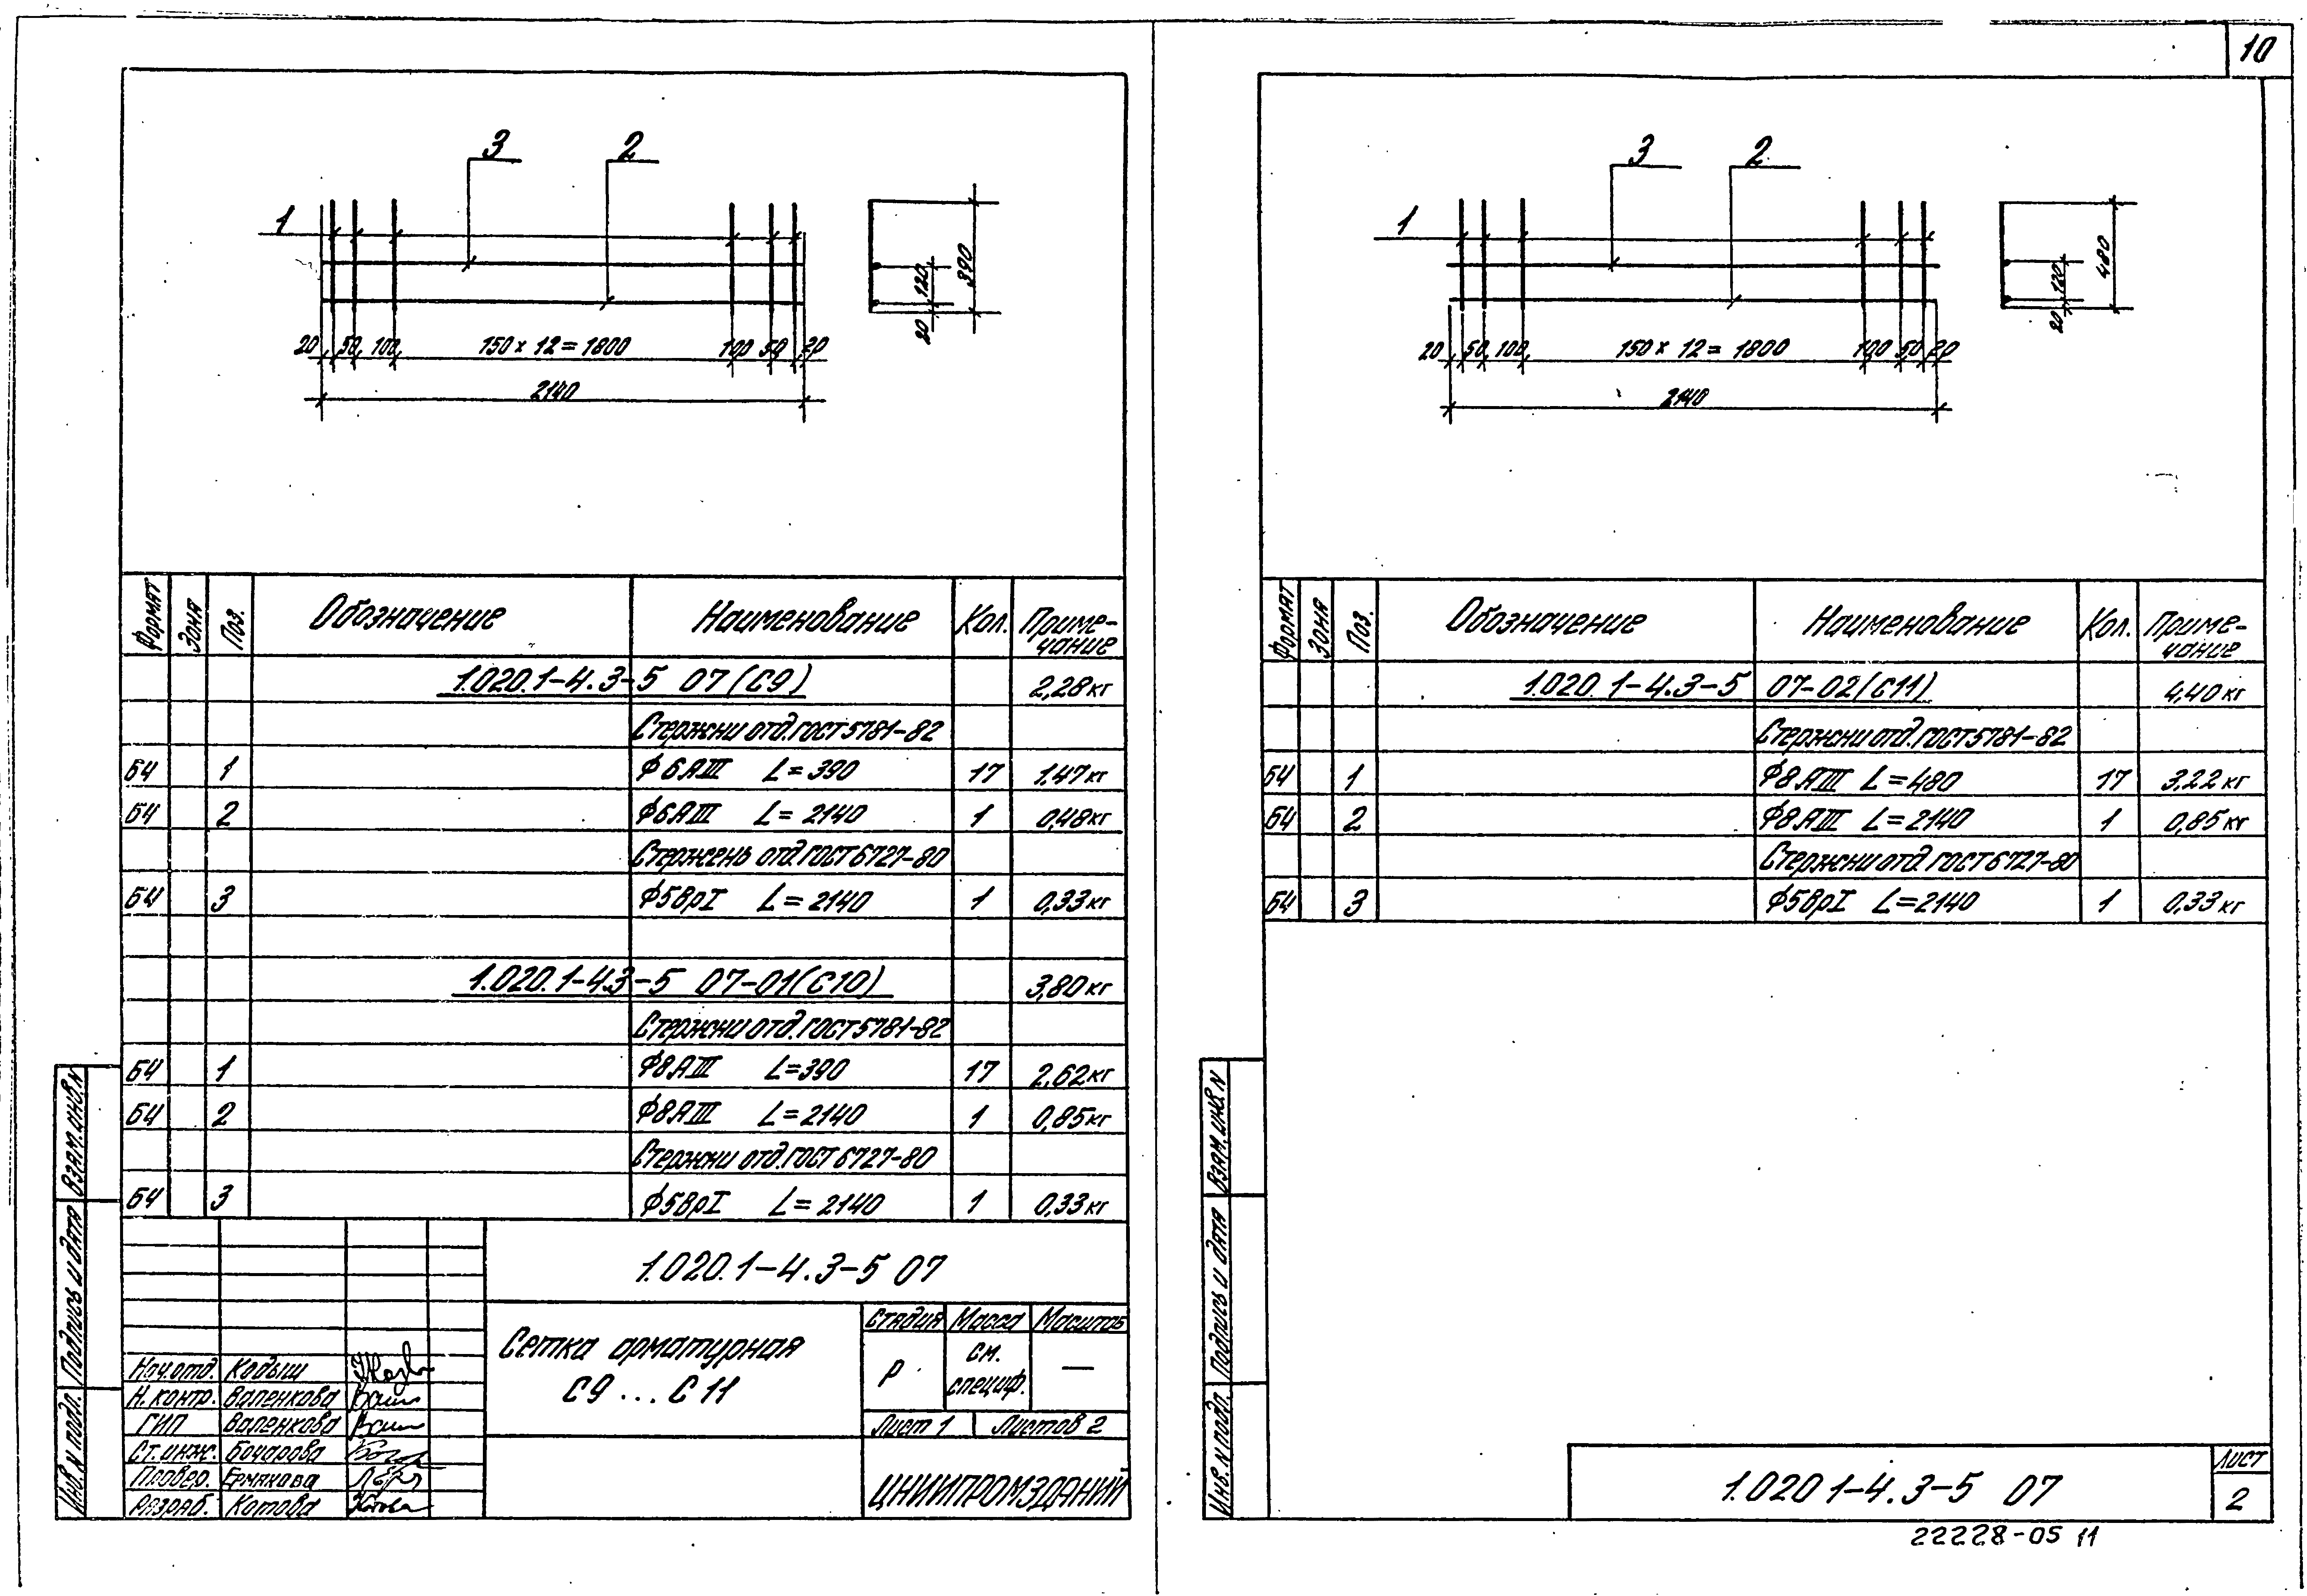 10
3 2
1
20 50 100 150 х 12 = 1800 100 50 20
2140
20 120 390
Формат Зона Поз. Обозначение Наименование Кол. Приме-
чание
1.020.1-4.3-5 07 (С9) 2,28 кг
Стержни отд. ГОСТ 5781-82
БЧ 1 Ф6АIII L=390 17 1.47 кг
БЧ 2 Ф6АIII L=2140 1 0,48 кг
Стержень отд. ГОСТ 6727-80
БЧ 3 Ф5ВрI L=2140 1 0,33 кг
1.020.1-4.3-5 07-01(С10) 3,80 кг
Стержни отд. ГОСТ 5781-82
БЧ 1 Ф8АIII L=390 17 2,62 кг
БЧ 2 Ф8АIII L=2140 1 0,85 кг
Стержни отд. ГОСТ 6727-80
БЧ 3 Ф5ВрI L=2140 1 0,33 кг
1.020.1-4.3-5 07
Сетка арматурная
С9...С11
Стадия Масса Масштаб
Р см.
специф. —
Лист 1 Листов 2
ЦНИИПРОМЗДАНИЙ
Нач.отд. Кодыш
Н.контр. Валенкова
ГИП Валенкова
Ст.инж. Бочарова
Провер. Ермакова
Разраб. Котова
Инв. N подл. Подпись и дата Взам.инв.N
3 2
1
20 50 100 150 х 12 = 1800 100 50 20
2140
20 120 480
Формат Зона Поз. Обозначение Наименование Кол. Приме-
чание
1.020.1-4.3-5 07-02(С11) 4,40 кг
Стержни отд. ГОСТ 5781-82
БЧ 1 Ф8АIII L=480 17 3,22 кг
БЧ 2 Ф8АIII L=2140 1 0,85 кг
Стержни отд. ГОСТ 6727-80
БЧ 3 Ф5ВрI L=2140 1 0,33 кг
Инв. N подл. Подпись и дата Взам.инв.N
1.020 1-4.3-5 07
Лист
2
22228-05 11